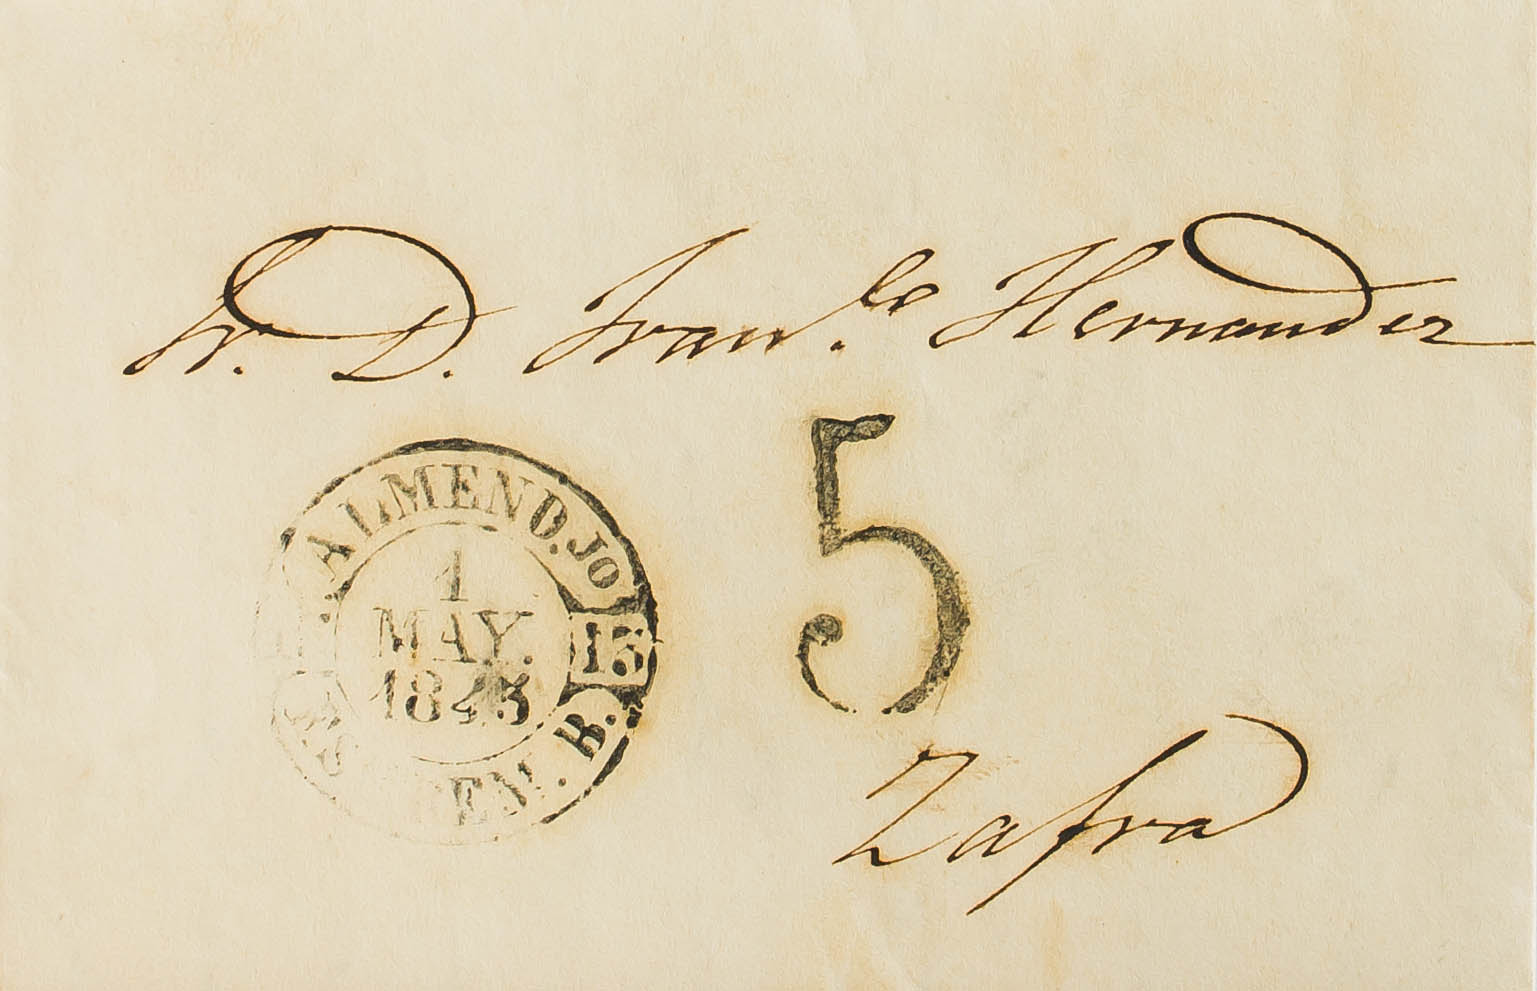 Sr. D. Franco. Hernandez
ALMEND.JO
1
MAY.
1843
13
EM. B.
5
Zafra